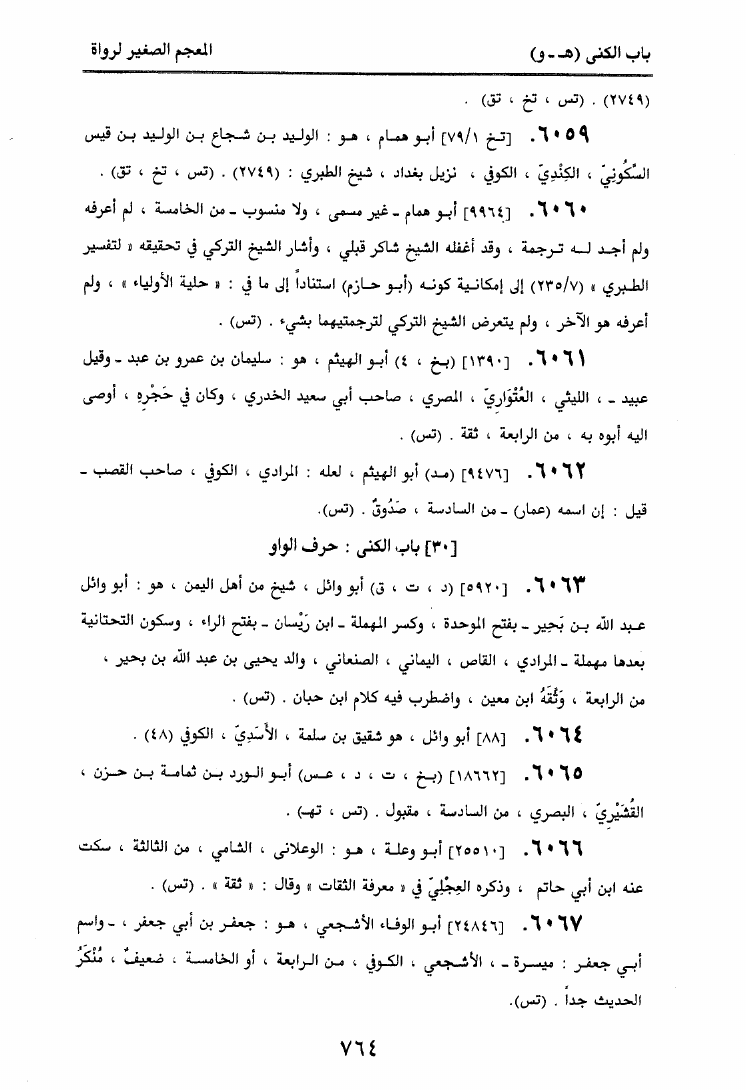 باب الكنى (هـ - و)
المعجم الصغير لرواة
(٢٧٤٩) . (تس ، تخ ، تق) .
٦٠٥٩. [تخ ٧٩/١] أبو همام ، هو : الوليد بن شجاع بن الوليد بن قيس
السَّكُونِيّ ، الكِنْدِيّ ، الكوفي ، نزيل بغداد ، شيخ الطبري : (٢٧٤٩) . (تس ، تخ ، تق) .
٦٠٦٠. [٩٩٦٤] أبو همام - غير مسمى ، ولا منسوب - من الخامسة ، لم أعرفه
ولم أجد له ترجمة ، وقد أغفله الشيخ شاكر قبلي ، وأشار الشيخ التركي في تحقيقه « لتفسير
الطبري » (٢٣٥/٧) إلى إمكانية كونه (أبو حازم) استناداً إلى ما في : « حلية الأولياء » ، ولم
أعرفه هو الآخر ، ولم يتعرض الشيخ التركي لترجمتيهما بشيء . (تس) .
٦٠٦١. [١٣٩٠] (بخ ، ٤) أبو الهيثم ، هو : سليمان بن عمرو بن عبد - وقيل
عبيد - ، الليثي ، العُتْوَارِيّ ، المصري ، صاحب أبي سعيد الخدري ، وكان في حَجْرِهِ ، أوصى
اليه أبوه به ، من الرابعة ، ثقة . (تس) .
٦٠٦٢. [٩٤٧٦] (مد) أبو الهيثم ، لعله : المرادي ، الكوفي ، صاحب القصب -
قيل : إن اسمه (عمار) - من السادسة ، صَدُوقٌ . (تس).
[٣٠] باب الكنى : حرف الواو
٦٠٦٣. [٥٩٢٠] (د ، ت ، ق) أبو وائل ، شيخ من أهل اليمن ، هو : أبو وائل
عبد الله بن بَحِير - بفتح الموحدة ، وكسر المهملة - ابن رَيْسان - بفتح الراء ، وسكون التحتانية
بعدها مهملة - المرادي ، القاص ، اليماني ، الصنعاني ، والد يحيى بن عبد الله بن بحير ،
من الرابعة ، وَثَّقَهُ ابن معين ، واضطرب فيه كلام ابن حبان . (تس) .
٦٠٦٤. [٨٨] أبو وائل ، هو شقيق بن سلمة ، الأَسَدِيّ ، الكوفي (٤٨) .
٦٠٦٥. [١٨٦٦٢] (بخ ، ت ، د ، عس) أبو الورد بن ثمامة بن حزن ،
القُشَيْرِيّ ، البصري ، من السادسة ، مقبول . (تس ، تهـ) .
٦٠٦٦. [٢٥٥١٠] أبو وعلة ، هو : الوعلانى ، الشامي ، من الثالثة ، سكت
عنه ابن أبي حاتم ، وذكره العِجْلِيّ في « معرفة الثقات » وقال : « ثقة » . (تس) .
٦٠٦٧. [٢٤٨٤٦] أبو الوفاء الأشجعي ، هو : جعفر بن أبي جعفر ، - واسم
أبي جعفر : ميسرة - ، الأشجعي ، الكوفي ، من الرابعة ، أو الخامسة ، ضعيفٌ ، مُنْكَرُ
الحديث جداً . (تس).
٧٦٤